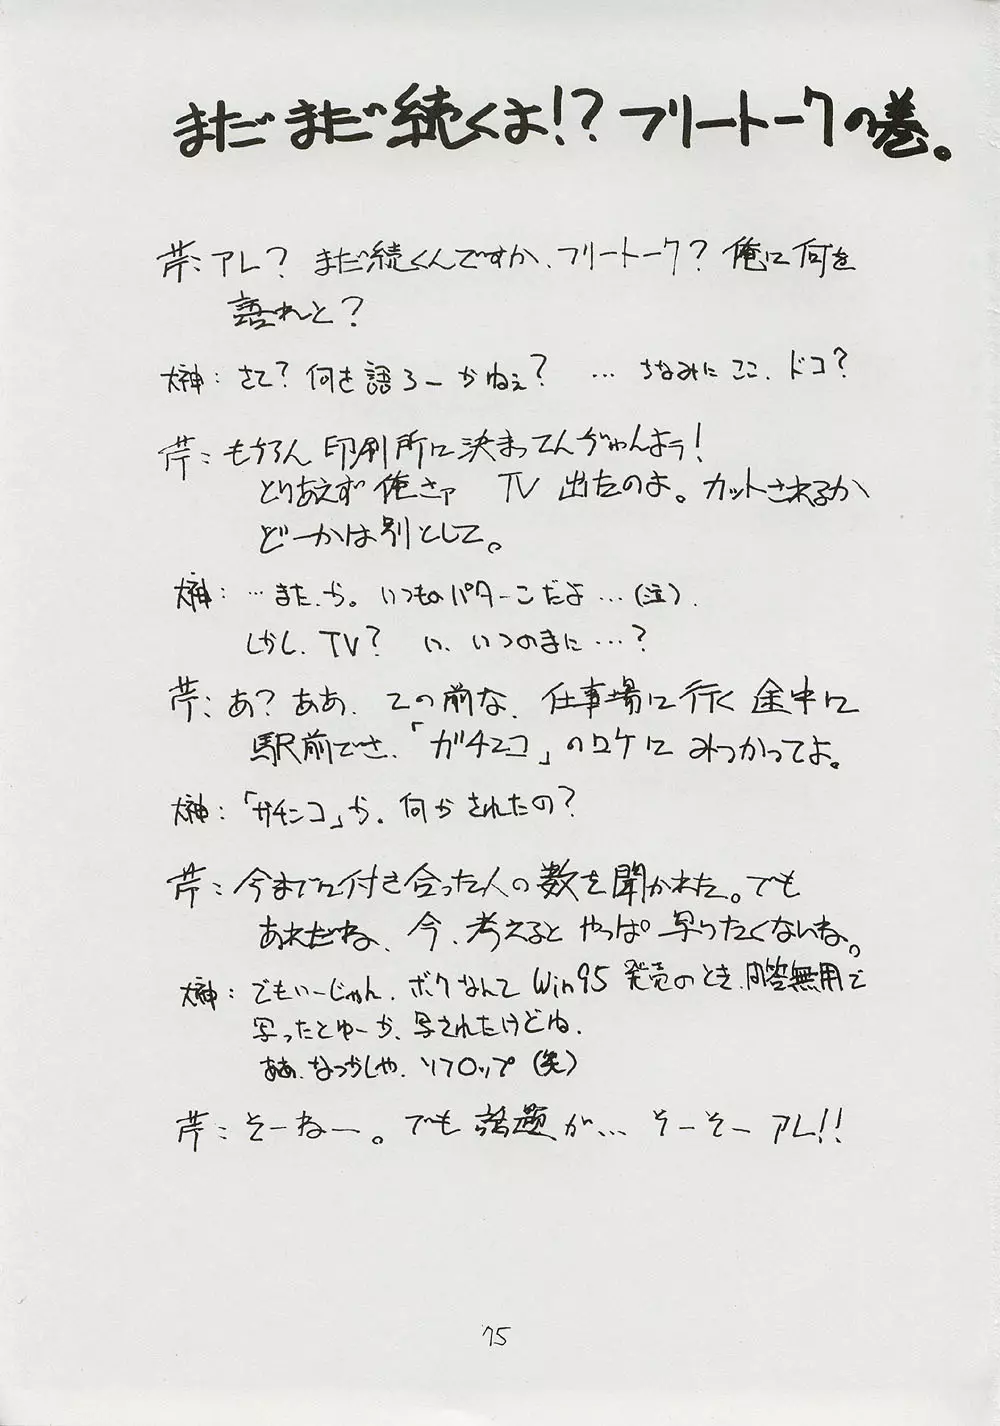 まだまだ続くよ!?フリートークの巻。
芹:アレ?まだ続くんですか、フリートーク?俺に何を
語れと?
大神:さて?何を語ろーかねぇ?…ちなみにここ、ドコ?
芹:もちろん印刷所に決まってんぢゃんよぅ!
とりあえず俺さァ TV出たのよ。カットされるか
どーかは別として。
大神:…また、か。いつものパターンだよ…(泣)。
しかし、TV?い、いつのまに…?
芹:あ?ああ、この前な、仕事場に行く途中に
駅前でさ、「ガチンコ」のロケにみつかってよ。
大神:「ガチンコ」か。何かされたの?
芹:今までに付き合った人の数を聞かれた。でも
あれだね、今、考えるとやっぱ写りたくないね。
大神:でもいーじゃん、ボクなんてWin95発売のとき、問答無用で
写ったとゆーか、写されたけどね、
ああ、なつかしや、ソフロップ(笑)
芹:そーねー。でも話題が…そーそーアレ!!
75